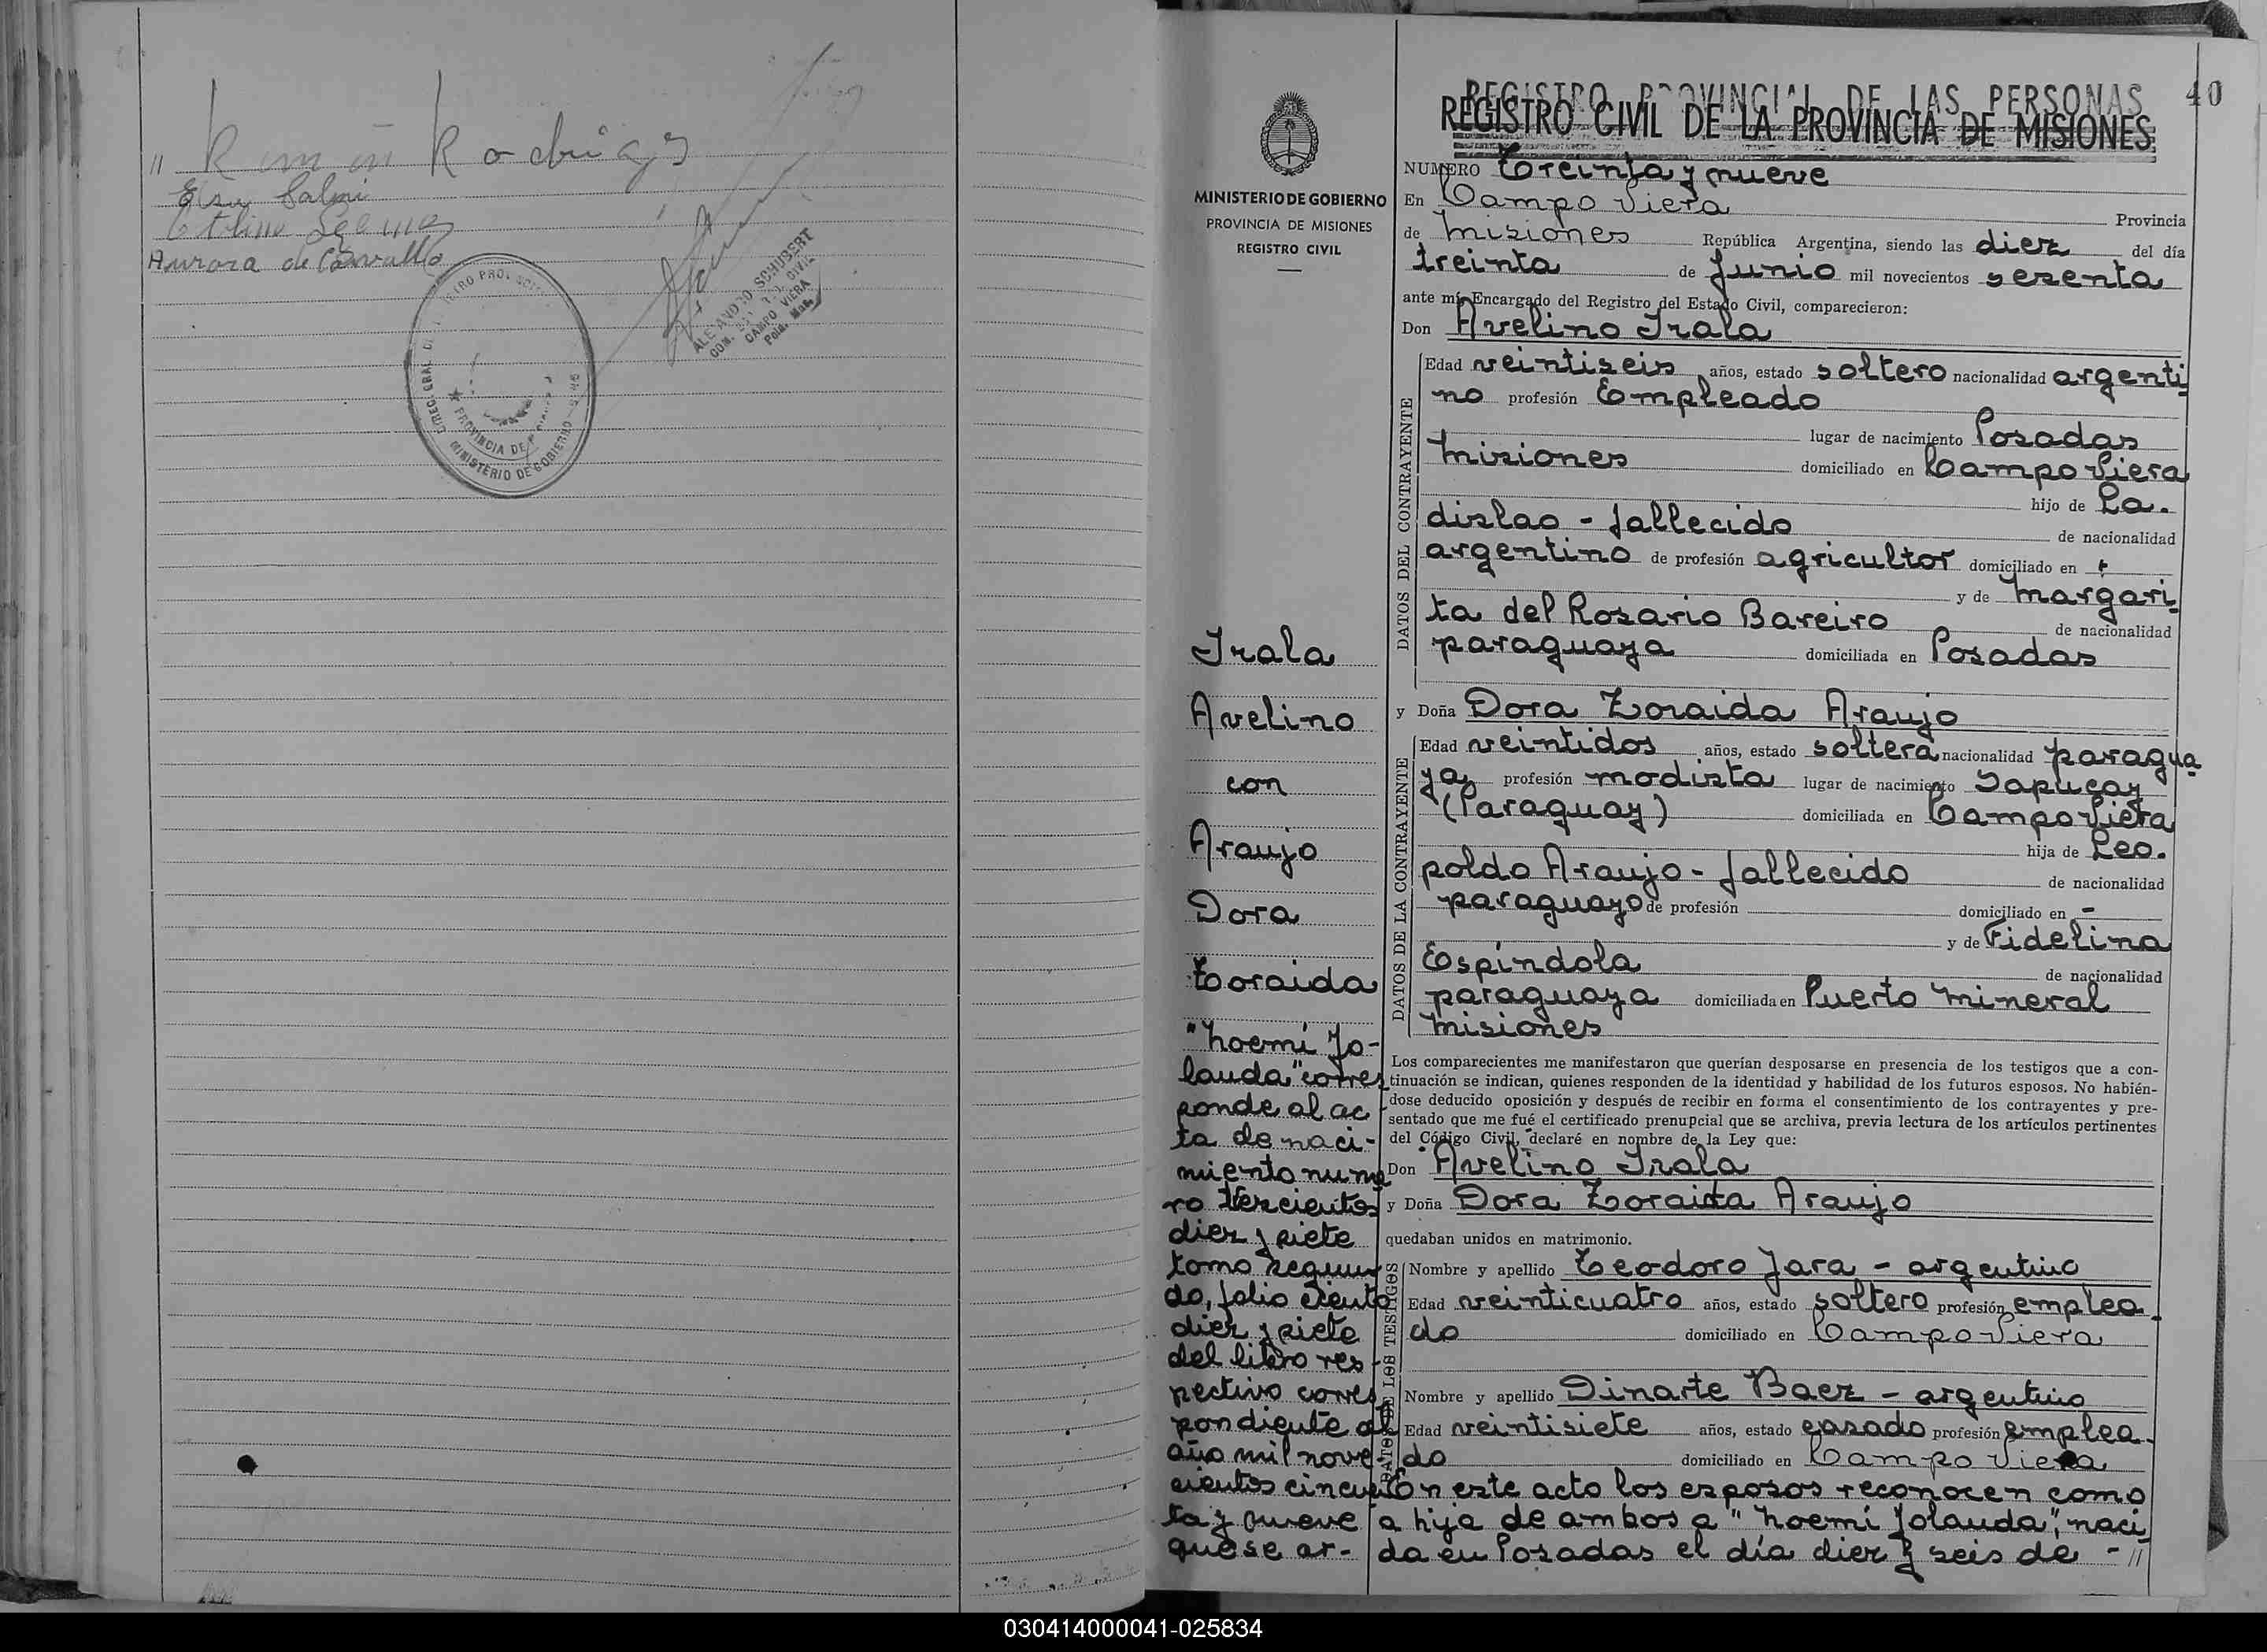 " Ramón Rodrigs
Aurora de Carvallo
MINISTERIO DE GOBIERNO
PROVINCIA DE
ALEJANDRO SCHUBERT
CAMPO VIERA
Pcia. Mnes.
40
REGISTRO PROVINCIAL DE LAS PERSONAS
REGISTRO CIVIL DE LA PROVINCIA DE MISIONES
MINISTERIO DE GOBIERNO
PROVINCIA DE MISIONES
REGISTRO CIVIL
NUMERO Treinta y nueve
En Campo Viera Provincia
de Misiones República Argentina, siendo las diez del día
treinta de Junio mil novecientos sesenta
ante mí, Encargado del Registro del Estado Civil, comparecieron:
Don Avelino Irala
DATOS DEL CONTRAYENTE
Edad veintiseis años, estado soltero nacionalidad argenti
no profesión Empleado
lugar de nacimiento Posadas
Misiones domiciliado en Campo Viera
hijo de La.
dislao - fallecido de nacionalidad
argentino de profesión agricultor domiciliado en
y de Margari
ta del Rosario Bareiro de nacionalidad
paraguaya domiciliada en Posadas
y Doña Dora Zoraida Araujo
DATOS DE LA CONTRAYENTE
Edad veintidos años, estado soltera nacionalidad paragua
ya profesión modista lugar de nacimiento Sapucay
(Paraguay) domiciliada en Campo Viera
hija de Leo.
poldo Araujo - fallecido de nacionalidad
paraguayo de profesión domiciliado en -
y de Fidelina
Espíndola de nacionalidad
paraguaya domiciliada en Puerto Mineral
Misiones
Los comparecientes me manifestaron que querían desposarse en presencia de los testigos que a con-
tinuación se indican, quienes responden de la identidad y habilidad de los futuros esposos. No habién-
dose deducido oposición y después de recibir en forma el consentimiento de los contrayentes y pre-
sentado que me fué el certificado prenupcial que se archiva, previa lectura de los artículos pertinentes
del Código Civil, declaré en nombre de la Ley que:
Don Avelino Irala
y Doña Dora Zoraida Araujo
quedaban unidos en matrimonio.
DATOS DE LOS TESTIGOS
Nombre y apellido Teodoro Jara - argentino
Edad veinticuatro años, estado soltero profesión emplea
do domiciliado en Campo Viera
Nombre y apellido Dinarte Baez - argentino
Edad veintisiete años, estado casado profesión emplea.
do domiciliado en Campo Viera
En este acto los esposos reconocen como
a hija de ambos a "Noemi Jolanda", naci
da en Posadas el día diez y seis de - //
Irala
Avelino
con
Araujo
Dora
Zoraida
"Noemi Jo-
landa" corres
ponde al ac
ta de naci-
miento nume
ro trescientos
diez y siete
tomo segun
do, folio ciento
diez y siete
del libro res-
pectivo corres
pondiente al
año mil nove-
cientos cincuen
ta y nueve
que se ar-
030414000041-025834